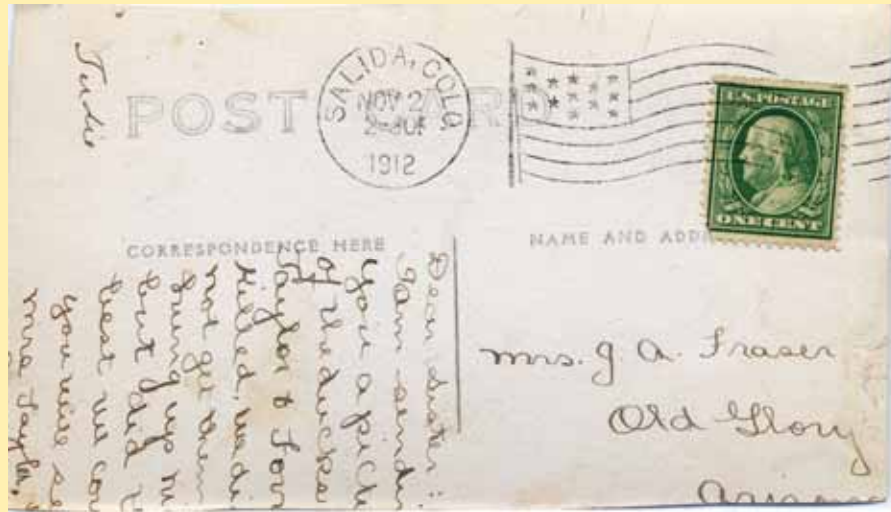 SALIDA, COLO.
NOV 2
1912
POST CARD
U.S. POSTAGE
ONE CENT
CORRESPONDENCE HERE
NAME AND ADDR
Dear Sister:
I am sendi
you a pictu
of the ducks
Taylor &
Killed, we di
not get them
hung up ni
but did t
best we cou
you will se
Mrs Taylor,
Mrs. J. A. Fraser
Old Glory
Arizona